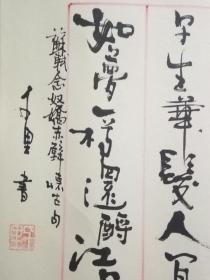 早生華髮人间
如夢一樽還酹江
蘇軾念奴嬌赤壁懷古句
書